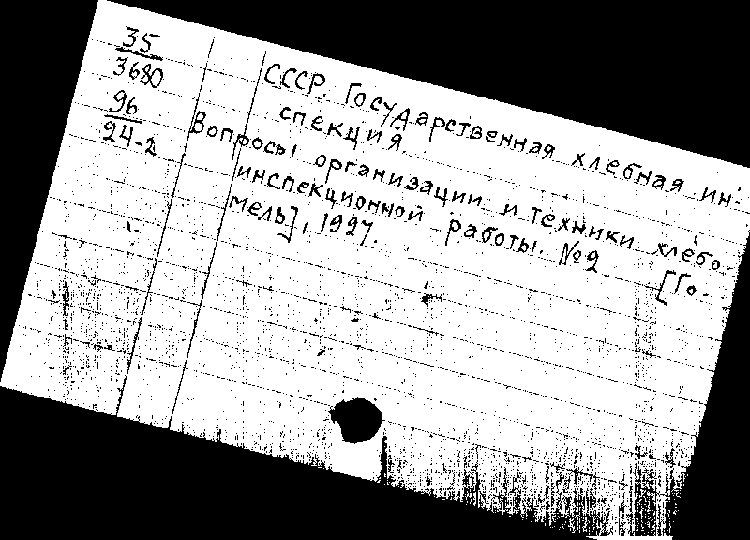 35
3680
96
24-2
СССР. Государственная хлебная ин-
спекция.
Вопросы организации и техники хлебо-
инспекционной работы. №2 [Го-
мель], 1927.